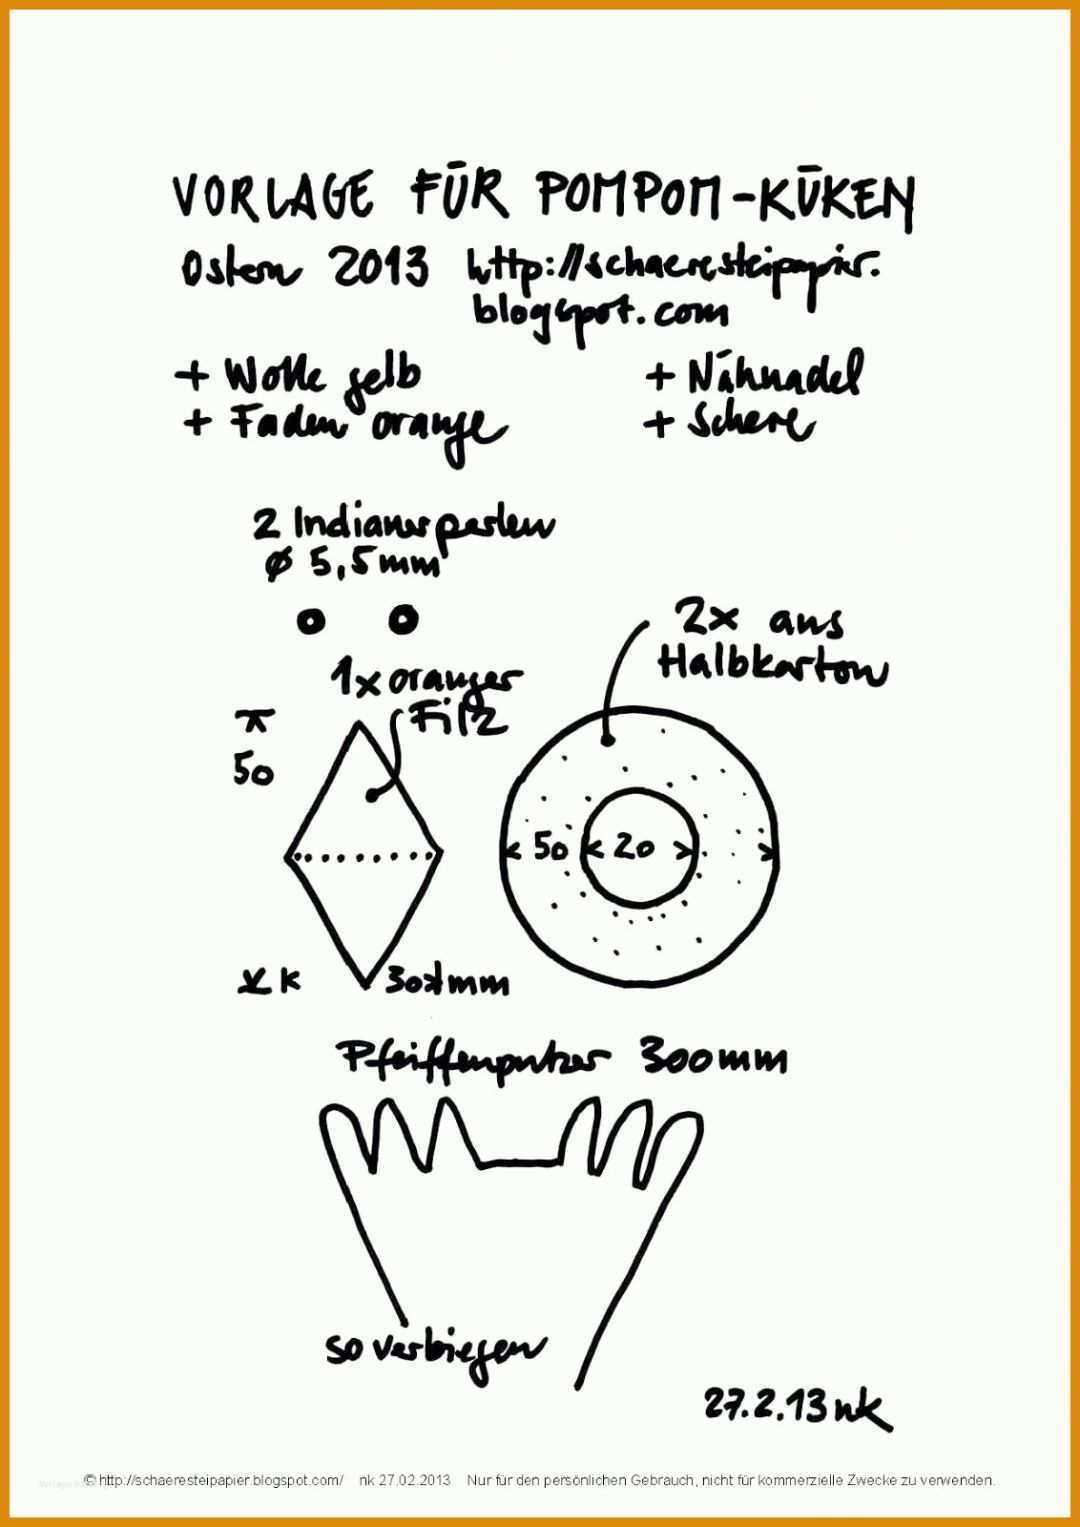 VORLAGE FÜR POMPOM-KÜKEN
Ostern 2013 http://schaeresteipapier.
blogspot.com
+ Wolle gelb + Nähnadel
+ Faden orange + Schere
2 Indianerperlen
Ø 5,5mm
2x aus
Halbkarton
1x oranger
Filz
50
50 20
30 mm
Pfeiffenputzer 300mm
so verbiegen
27.2.13 nk
© http://schaeresteipapier.blogspot.com/ nk 27.02.2013 Nur für den persönlichen Gebrauch, nicht für kommerzielle Zwecke zu verwenden.